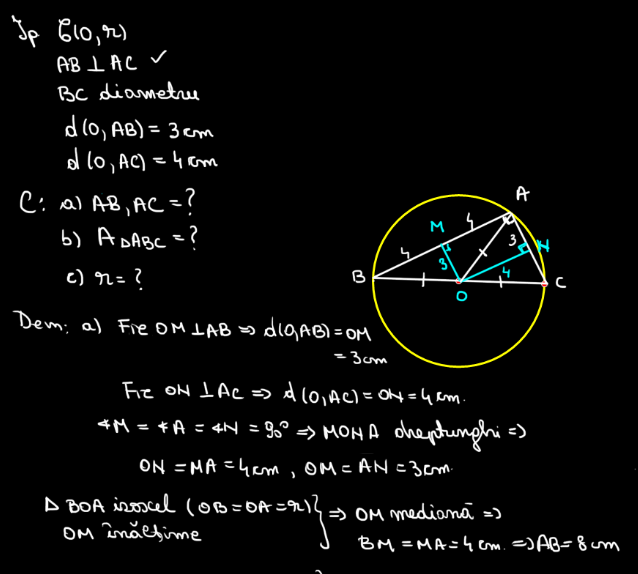 Ip C(O, r)
AB ⊥ AC ✓
BC diametru
d(O, AB) = 3 cm
d(O, AC) = 4 cm
C: a) AB, AC = ?
b) A ΔABC = ?
c) r = ?
A
M
4
3
N
4
3
B
4
C
O
Dem: a) Fie OM ⊥ AB ⇒ d(O,AB) = OM
= 3 cm
Fie ON ⊥ AC ⇒ d(O, AC) = ON = 4 cm.
∢M = ∢A = ∢N = 90° ⇒ MONA dreptunghi ⇒
ON = MA = 4 cm, OM = AN = 3 cm.
Δ BOA isoscel (OB = OA = r) } ⇒ OM mediană ⇒
OM înălțime
BM = MA = 4 cm. ⇒ AB = 8 cm